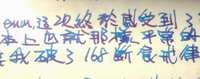 emm,这次终于感受到了
本上也就那样平常的
在我破了168断食戒律